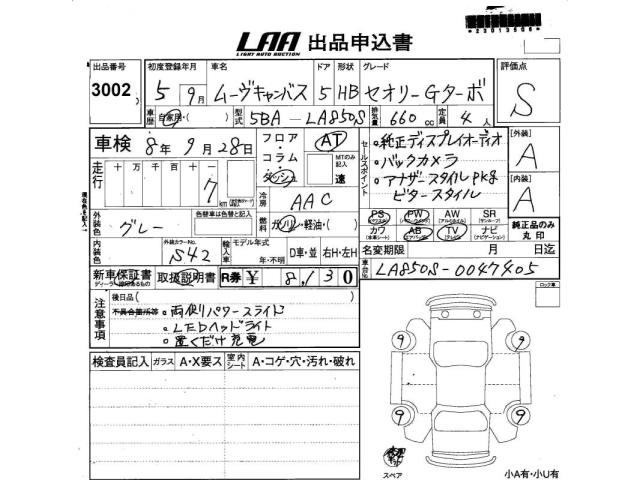 LAA 出品申込書
LIGHT AUTO AUCTION
23013506
出品番号 初度登録年月 車名 ドア 形状 グレード 評価点
3002 5年9月 ムーヴキャンバス 5 HB セオリーGターボ S
車歴 自家用・( ) 型式 5BA-LA850S 排気量 660cc 定員 4人
車検 8年9月28日 フロア・コラム・ダッシュ AT MTのみ記入 速
セールスポイント
・純正ディスプレイオーディオ
・バックカメラ
・アナザースタイルpkg
ビタースタイル
[外装] A
[内装] A
走行 十万 万 千 百 十 一
7 km
冷房 AAC
外装色 グレー 色替車は色替と記入 燃料 ガソリン・軽油・( )
PS PW AW SR 純正品のみ丸印
カワ AB TV ナビ
内装色 外装カラーNo. S42 輸入車 モデル年式 年・不明 D車・並 右H・左H
名変期限 月 日迄
新車保証書 取扱説明書 R券 ¥ 8,130
ディーラー
車台No. LA850S-0047405
注意事項 後日品( )
不具合箇所等 ・両側パワースライド
・LEDヘッドライト
・置くだけ充電
検査員記入 ガラス A・X要ス 室内シート A・コゲ・穴・汚れ・破れ
9 9
9 9
スペア
小A有・小U有